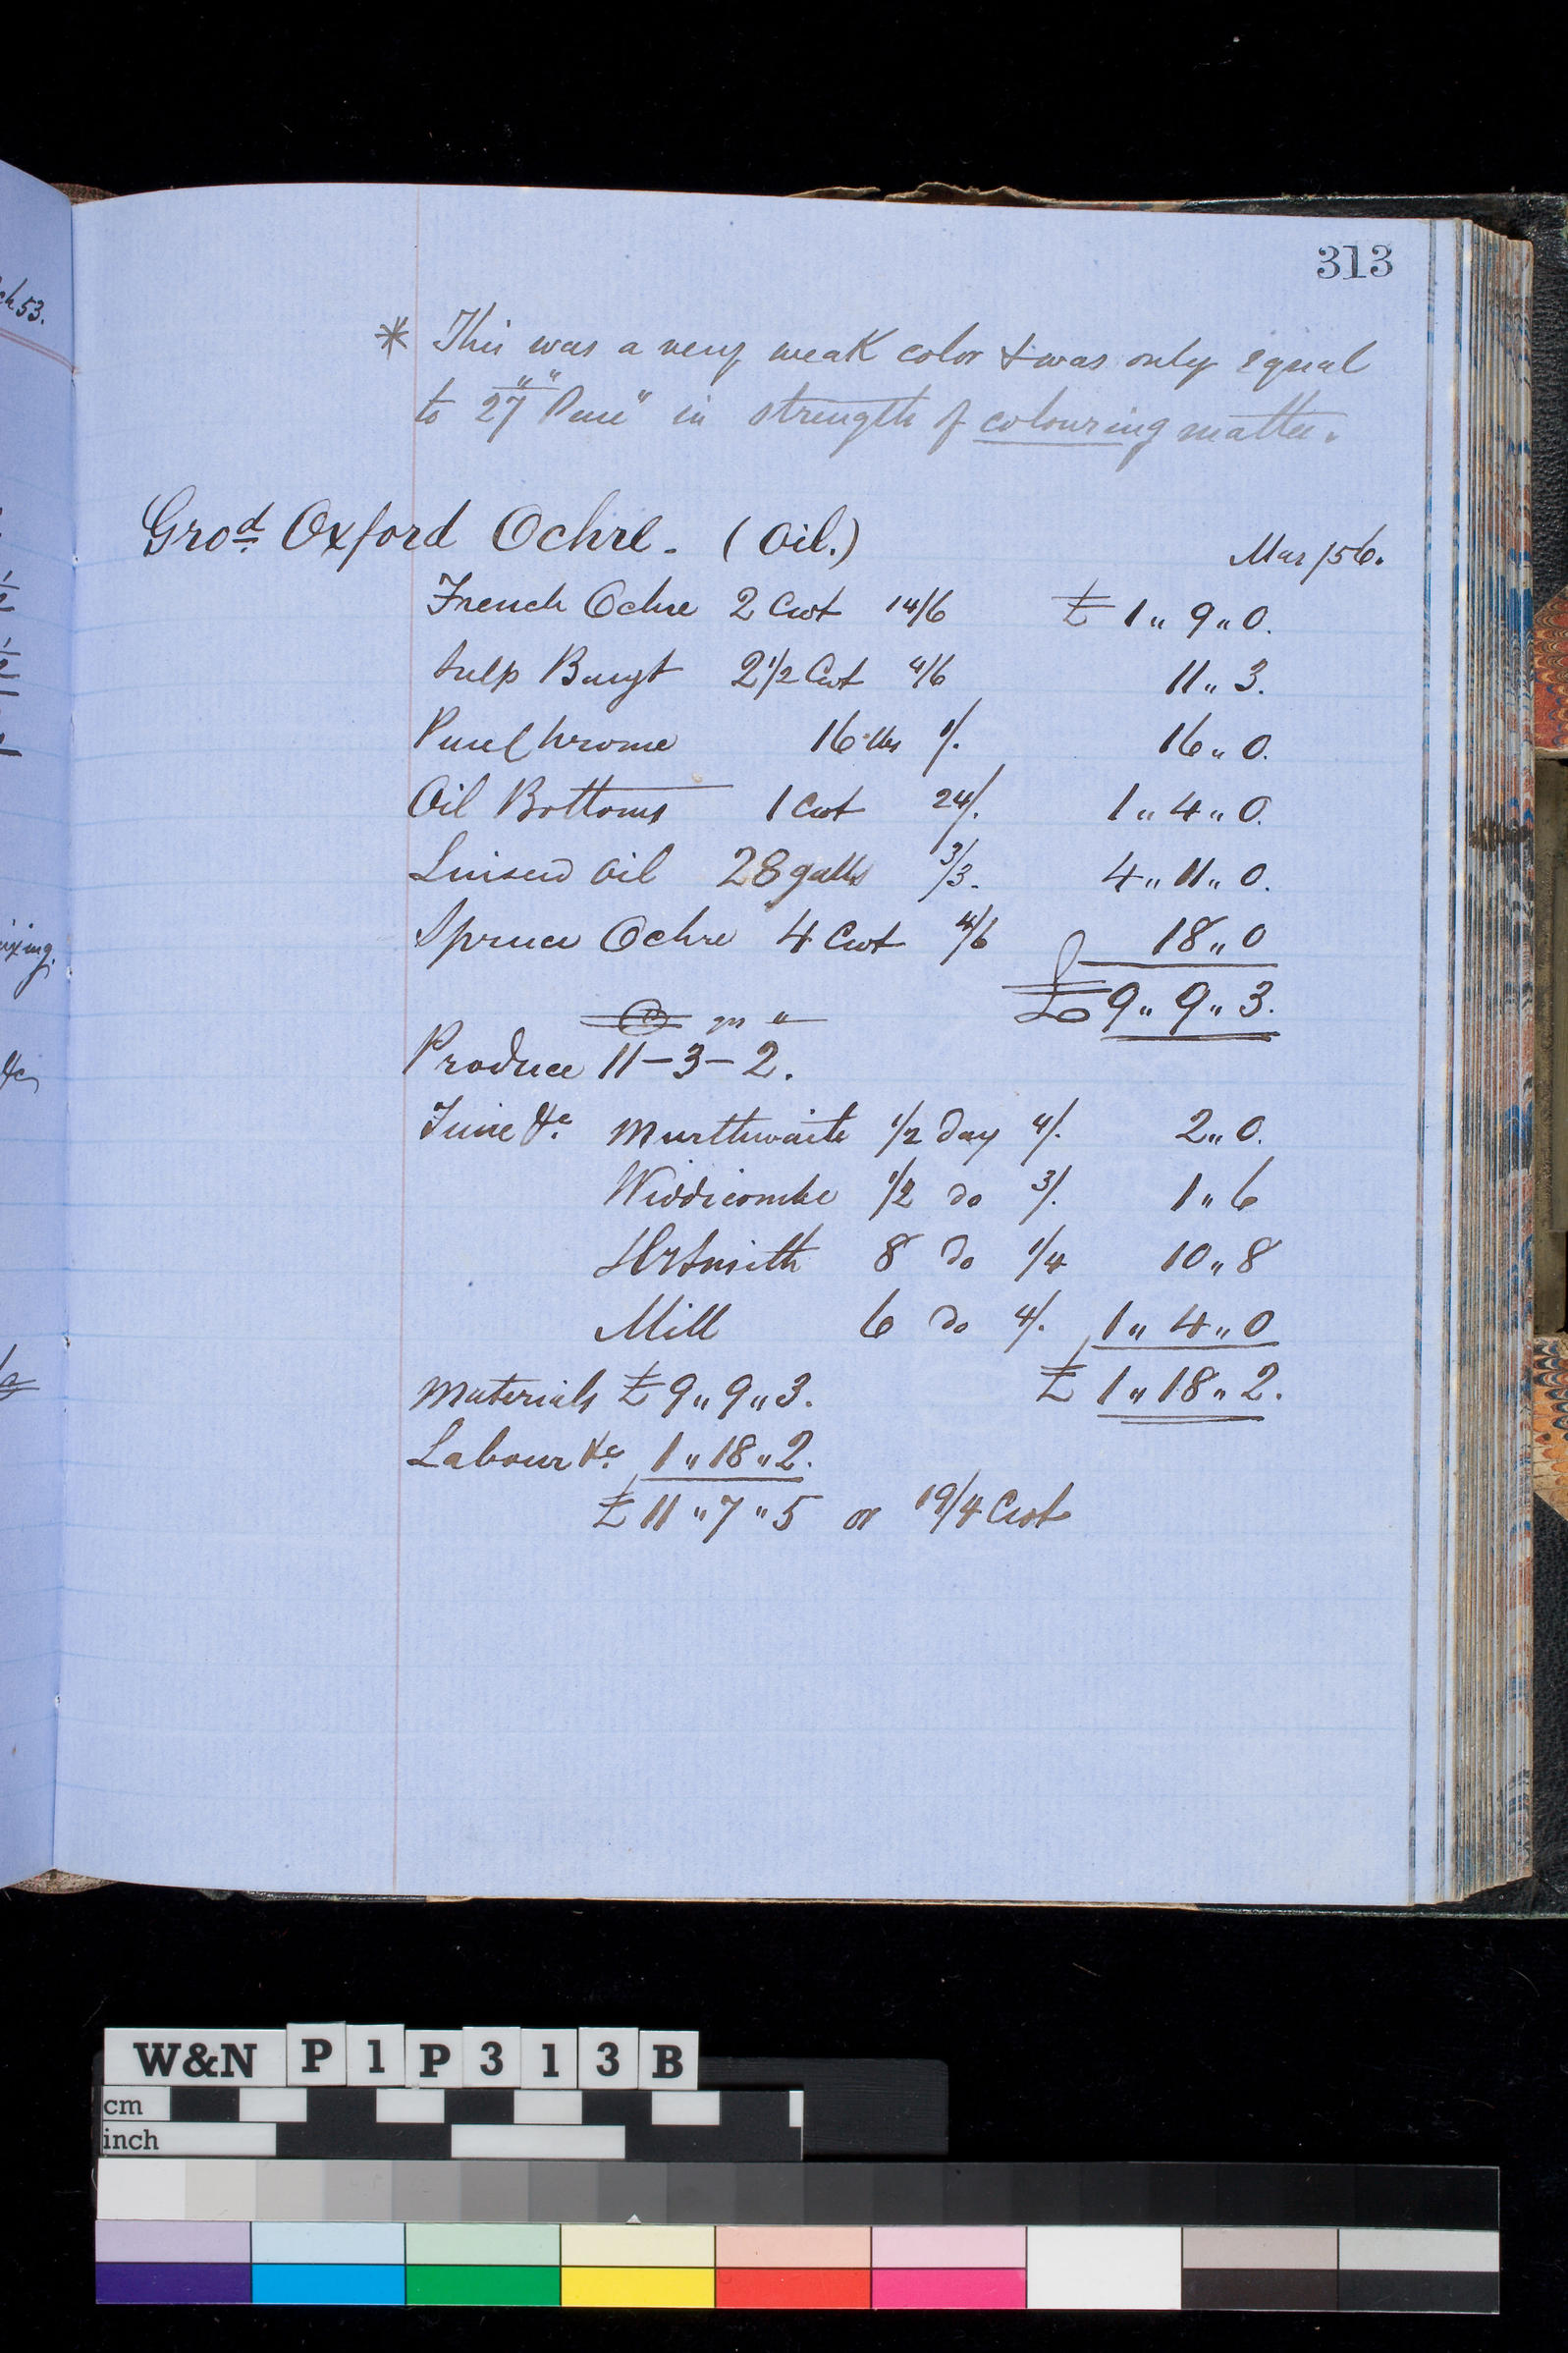 313
* This was a very weak color & was only equal
to 27 "Pure" in strength of colouring matter.
Gro.d Oxford Ochre. (Oil.)
Mar/56.
French Ochre 2 Cwt 14/6 £ 1 " 9 " 0.
Sulp Baryt 2 1/2 Cwt 4/6 11 " 3.
Pure Chrome 16 lbs 1/. 16 " 0.
Oil Bottoms 1 Cwt 24/. 1 " 4 " 0.
Linseed Oil 28 galls 3/3. 4 " 11 " 0.
Spruce Ochre 4 Cwt 4/6 18 " 0
£ 9 " 9 " 3.
Produce 11-3-2.
Time &c. Murthwaite 1/2 day 4/. 2 " 0.
Widdicombe 1/2 do 3/. 1 " 6
Smith 8 do 1/4 10 " 8
Mill 6 do 4/. 1 " 4 " 0
£ 1 " 18 " 2.
Materials £ 9 " 9 " 3.
Labour &c. 1 " 18 " 2.
£ 11 " 7 " 5 or 19/4 Cwt
ch 53.
ixing.
&c
W&N P1P313B
cm
inch